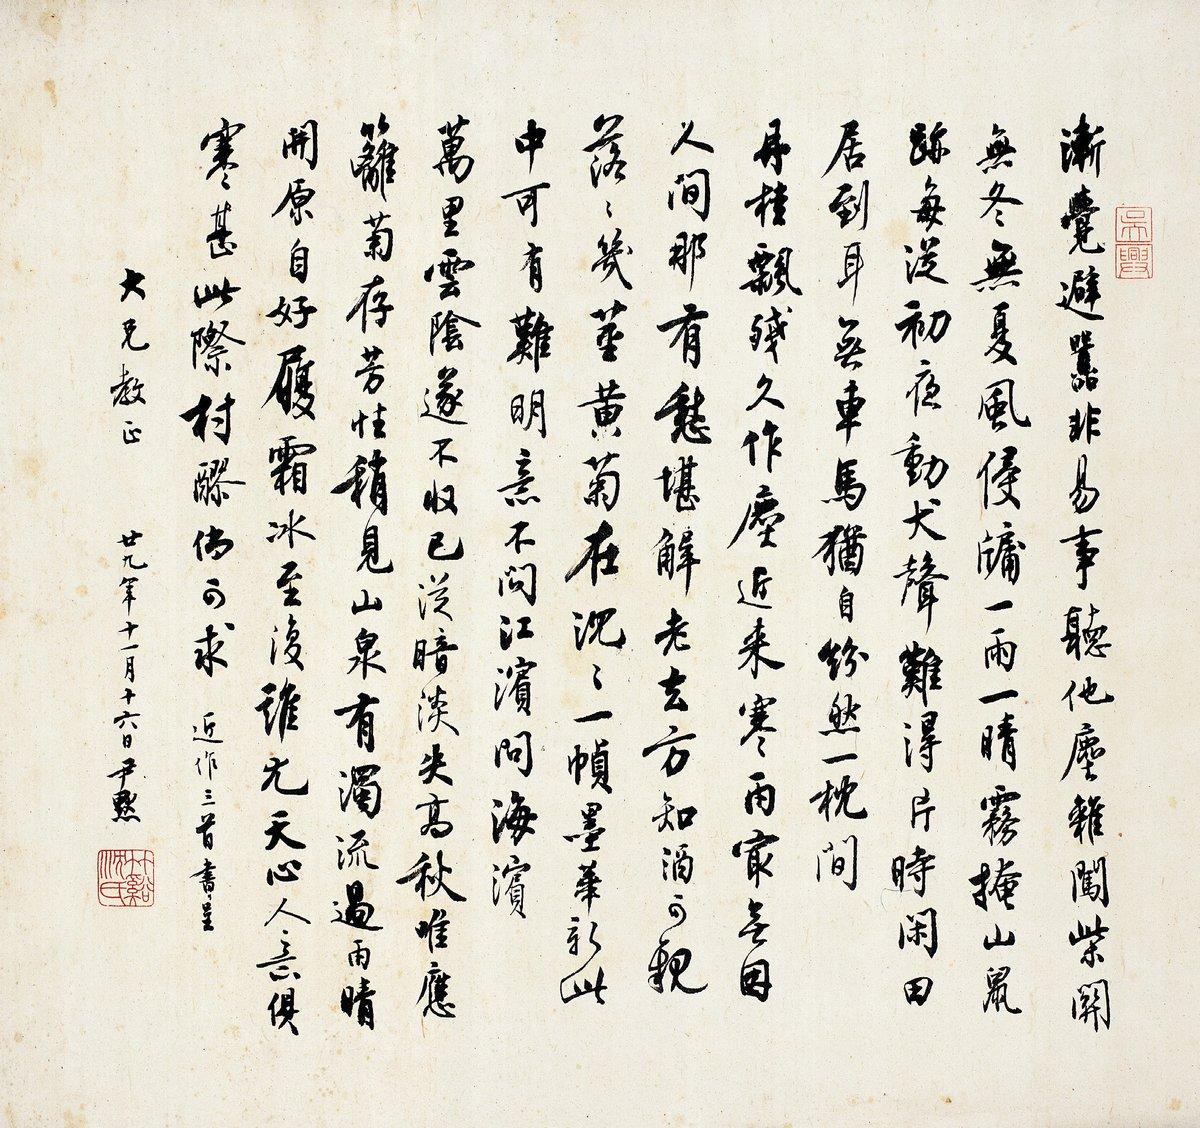 吳興
漸覺避囂非易事聽他塵雜闖柴關
無冬無夏風侵牖一雨一晴霧掩山鼠
跡每從初夜動犬聲難得片時閑田
居到耳無車馬猶自紛然一枕間
丹桂飄殘久作塵近来寒雨寂無因
人間那有愁堪解老去方知酒可親
落〻幾莖黃菊在沉〻一幀墨華新此
中可有難明意不問江濱問海濱
萬里雲陰遂不收已從暗淡失高秋唯應
籬菊存芳性稍見山泉有濁流過雨晴
開原自好履霜冰至復誰尤天心人意俱
寒甚此際村醪倘可求 近作三首書呈
大兄教正 廿九年十一月十六日尹默
竹谿沈氏